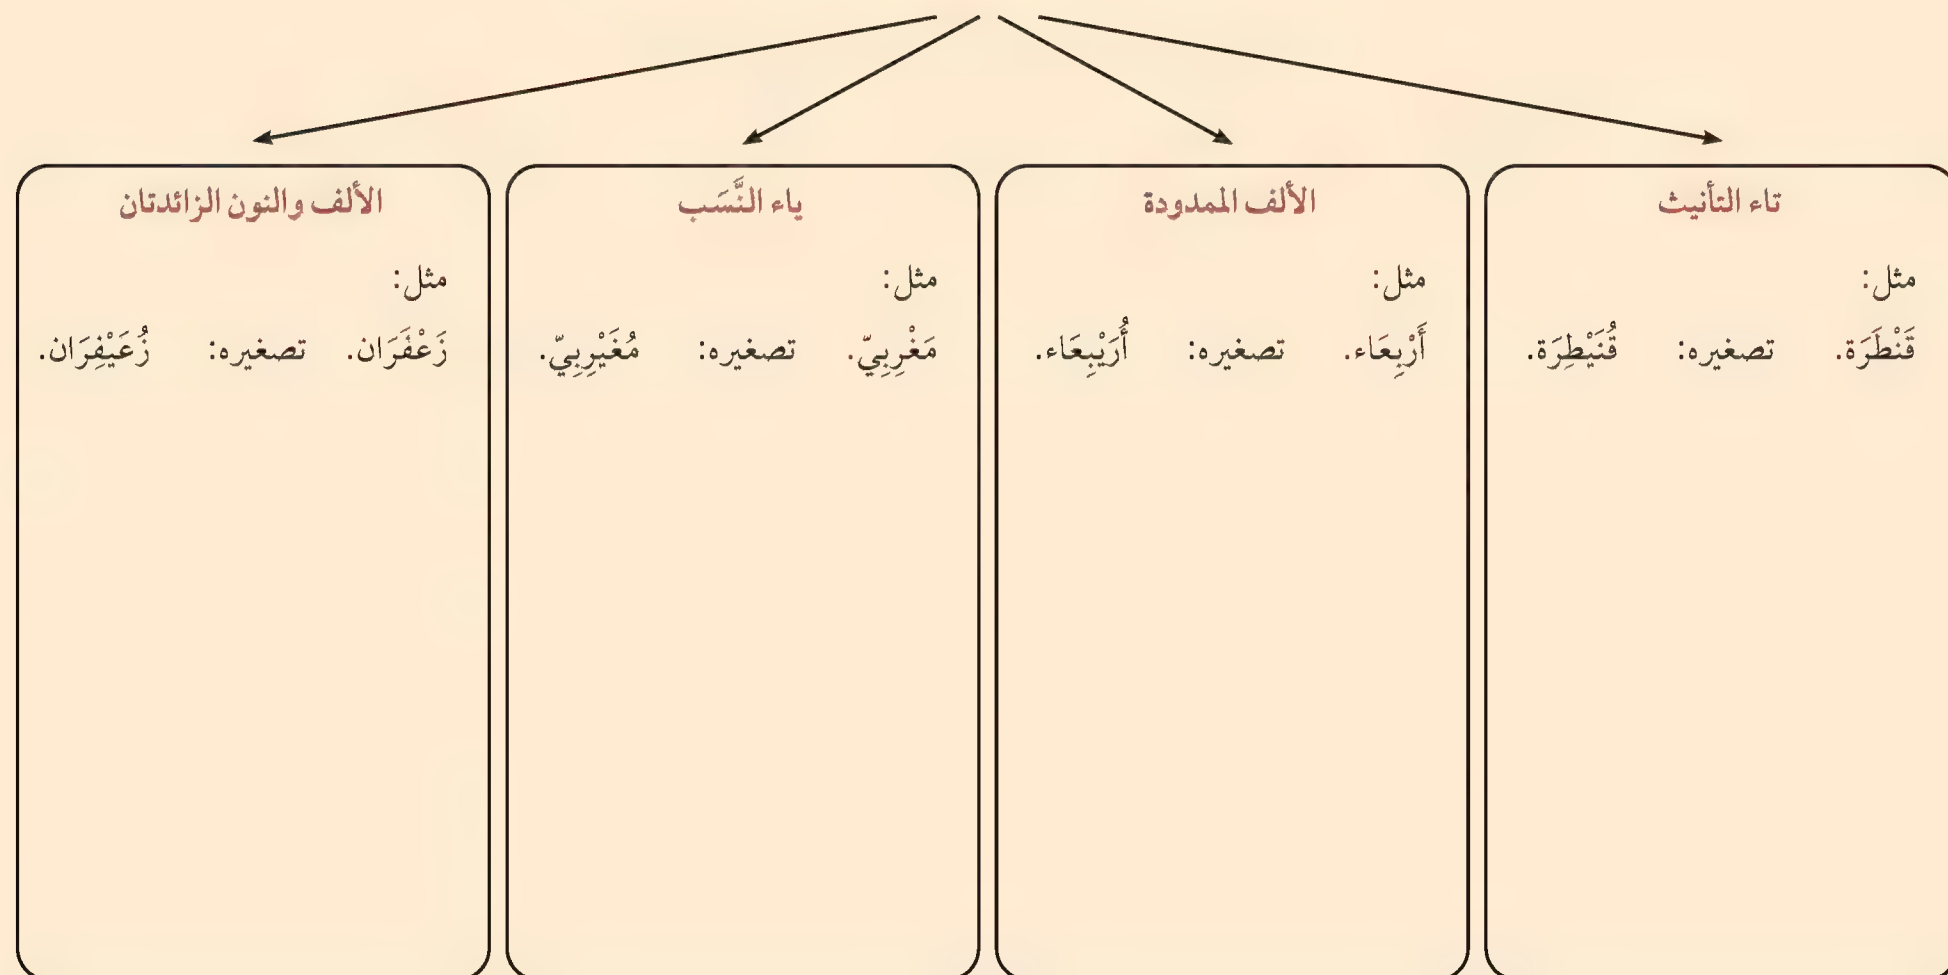 تاء التأنيث
مثل:
قَنْطَرَة. تصغيره: قُنَيْطِرَة.
الألف الممدودة
مثل:
أَرْبِعَاء. تصغيره: أُرَيْبِعَاء.
ياء النَّسَب
مثل:
مَغْرِبِيّ. تصغيره: مُغَيْرِبِيّ.
الألف والنون الزائدتان
مثل:
زَعْفَرَان. تصغيره: زُعَيْفِرَان.